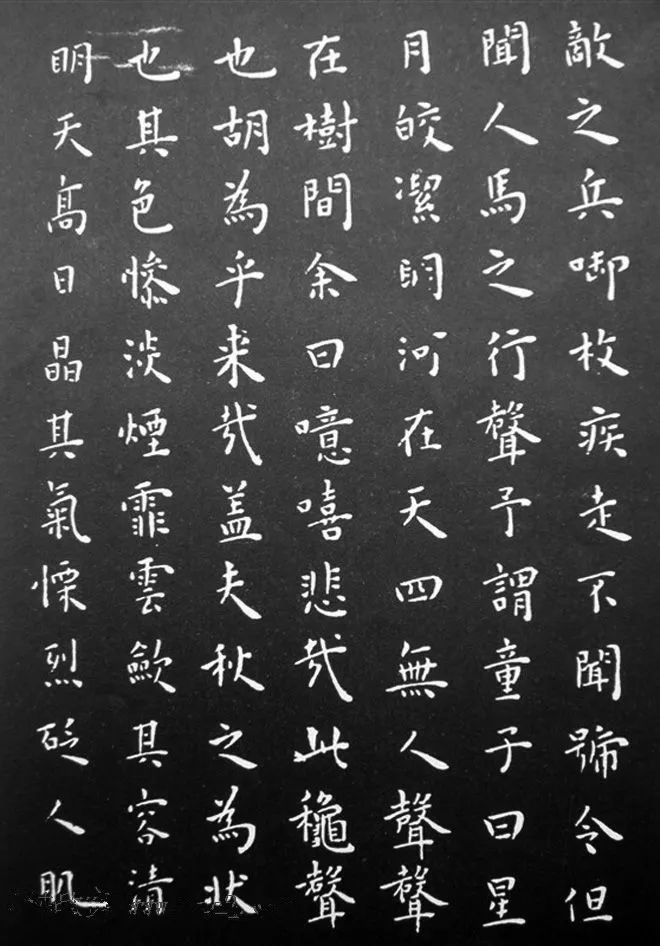 敵之兵啣枚疾走不聞號令但
聞人馬之行聲予謂童子曰星
月皎潔明河在天四無人聲聲
在樹間余曰噫嘻悲哉此穐聲
也胡為乎来哉盖夫秋之為狀
也其色慘淡煙霏雲歛其容清
明天髙日晶其氣慄烈砭人肌